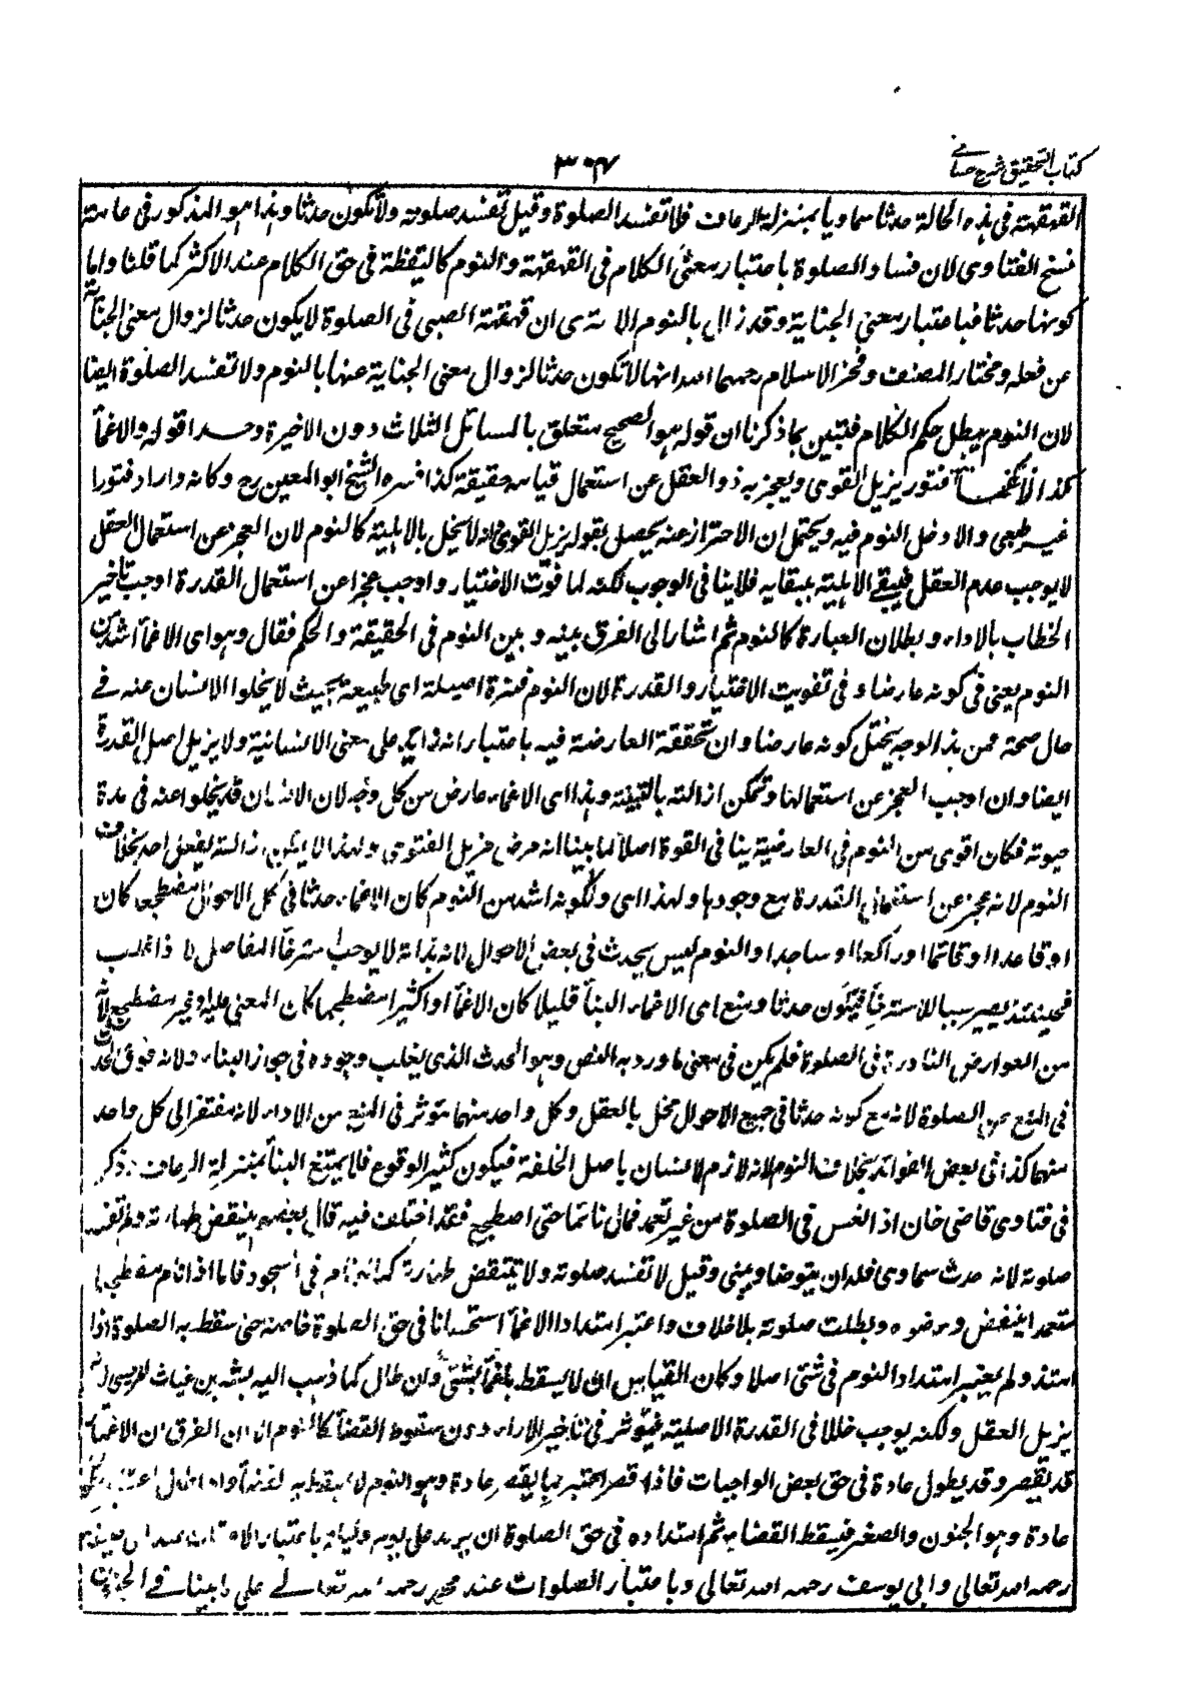 كتاب التحقيق شرح حسامي
٣٠٤
القهقهة في هذه الحالة حدثا سماويا بمنزلة الرعاف فلا تفسد الصلوة وقيل تفسد صلوته ولا تكون حدثا وهذا هو المذكور في عامة
نسخ الفتاوى لان فساد الصلوة باعتبار معنى الكلام في القهقهة والنوم كاليقظة في حق الكلام عند الاكثر كما قلنا واما
كونها حدثا فباعتبار معنى الجناية وقد زال بالنوم الا ترى ان قهقهة الصبي في الصلوة لا يكون حدثا لزوال معنى الجناية
عن فعله ومختار المصنف وفخر الاسلام رحمهما الله انها لا تكون حدثا لزوال معنى الجناية عنها بالنوم ولا تفسد الصلوة ايضا
لان النوم يبطل حكم الكلام فتبين بما ذكرنا ان قوله هو الصحيح متعلق بالمسائل الثلاث دون الاخيرة وحدها قوله والاغماء
كذا الاغماء فتور يزيل القوى ويعجز به ذو العقل عن استعمال قيامه حقيقة كذا فسره الشيخ ابو المعين رح وكانه واراد فتورا
غير طبعي والا دخل النوم فيه ويحتمل ان الاحتراز عنه يحصل بقوله يزيل القوى فانه لا يخل بالاهلية كالنوم لان العجز عن استعمال العقل
لا يوجب عدم العقل فيبقى الاهلية ببقايه فلا ينافى الوجوب لكنه لما فوت الاختيار واوجب عجزا عن استعمال القدرة اوجب تاخير
الخطاب بالاداء وبطلان العبارة كالنوم ثم اشار الى الفرق بينه وبين النوم في الحقيقة والحكم فقال وهو اى الاغماء اشد من
النوم يعنى في كونه عارضا وفى تفويت الاختيار والقدرة لان النوم فترة اصيلة اى طبيعة بحيث لا يخلوا الانسان عنه في
حال صحته فمن هذا الوجه يختل كونه عارضا وان تحققة العارضة فيه باعتبار انه زايد على معنى الانسانية ولا يزيل اصل القدرة
ايضا وان اوجب العجز عن استعمالها وتمكن ازالته بالتنبيه وهذا اى الاغماء عارض من كل وجه لان الانسان قد يخلوا عنه في مدة
حيوته فكان اقوى من النوم في العارضية ينافى القوة اصلا لما بينا انه مرض مزيل القوى ولهذا لا يمكن ازالته لفعل احد بخلاف
النوم لانه عجز عن استعمال القدرة مع وجودها ولهذا اى ولكونه اشد من النوم كان الاغماء حدثا في كل الاحوال مضطجعا كان
او قاعدا او قائما او راكعا او ساجدا والنوم ليس بحدث في بعض الاحوال لانه بذاته لا يوجب استرخاء المفاصل الا اذا غلب
فحينئذ يصير سببا للاسترخاء فيكون حدثا ومنع اى الاغماء البناء قليلا كان الاغماء او كثيرا مضطجعا كان المغمى عليه او غير مضطجع لانه
من العوارض النادرة في الصلوة فلم يكن في معنى ما ورد به النص وهو الحدث الذى يغلب وجوده في جواز البناء ولانه فوق الحدث
في المنع عن الصلوة لانه مع كونه حدثا في جميع الاحوال مخل بالعقل وكل واحد منهما موثر في المنع من الاداء لانه مفتقر الى كل واحد
منهما كذا فى بعض الفوائد بخلاف النوم لانه لازم لانسان باصل الخلقة فيكون كثير الوقوع فلا يمتنع البناء بمنزلة الرعاف وذكر
في فتاوى قاضى خان اذا نعس في الصلوة من غير تعمد فمال نائما حتى اضطجع فقد اختلف فيه قال بعضهم ينتقض طهارته ولم تفسد
صلوته لانه حدث سماوى فله ان يتوضا ويبنى وقيل لا تفسد صلوته ولا ينتقض طهارته كما اذا نام في السجود فاما اذا نام مضطجعا
متعمدا ينتقض وضوءه وبطلت صلوته بلا خلاف واعتبر امتداد الاغماء استحسانا في حق الصلوة خاصة حتى سقط به الصلوة اذا
امتد ولم يعتبر امتداد النوم في شئ اصلا وكان القياس ان لا يسقط بالاغماء شئ وان طال كما ذهب اليه بشر بن غياث المريسى لانه لا
يزيل العقل ولكنه يوجب خللا في القدرة الاصلية فيوثر في تاخير الاداء دون سقوط القضاء كالنوم الا ان الفرق ان الاغماء
قد يقصر وقد يطول عادة في حق بعض الواجبات فاذا قصر اعتبر بما يقصر عادة وهو النوم لا يسقط به القضاء واذا طال اعتبر بما يطول
عادة وهو الجنون والصغر فيسقط القضاء به ثم امتداده في حق الصلوة ان يزيد على يوم وليلة باعتبار الاوقات عند ابى حنيفة
رحمه الله تعالى وابى يوسف رحمه الله تعالى وباعتبار الصلوات عند محمد رحمه الله تعالى على ما بينا في الجنون